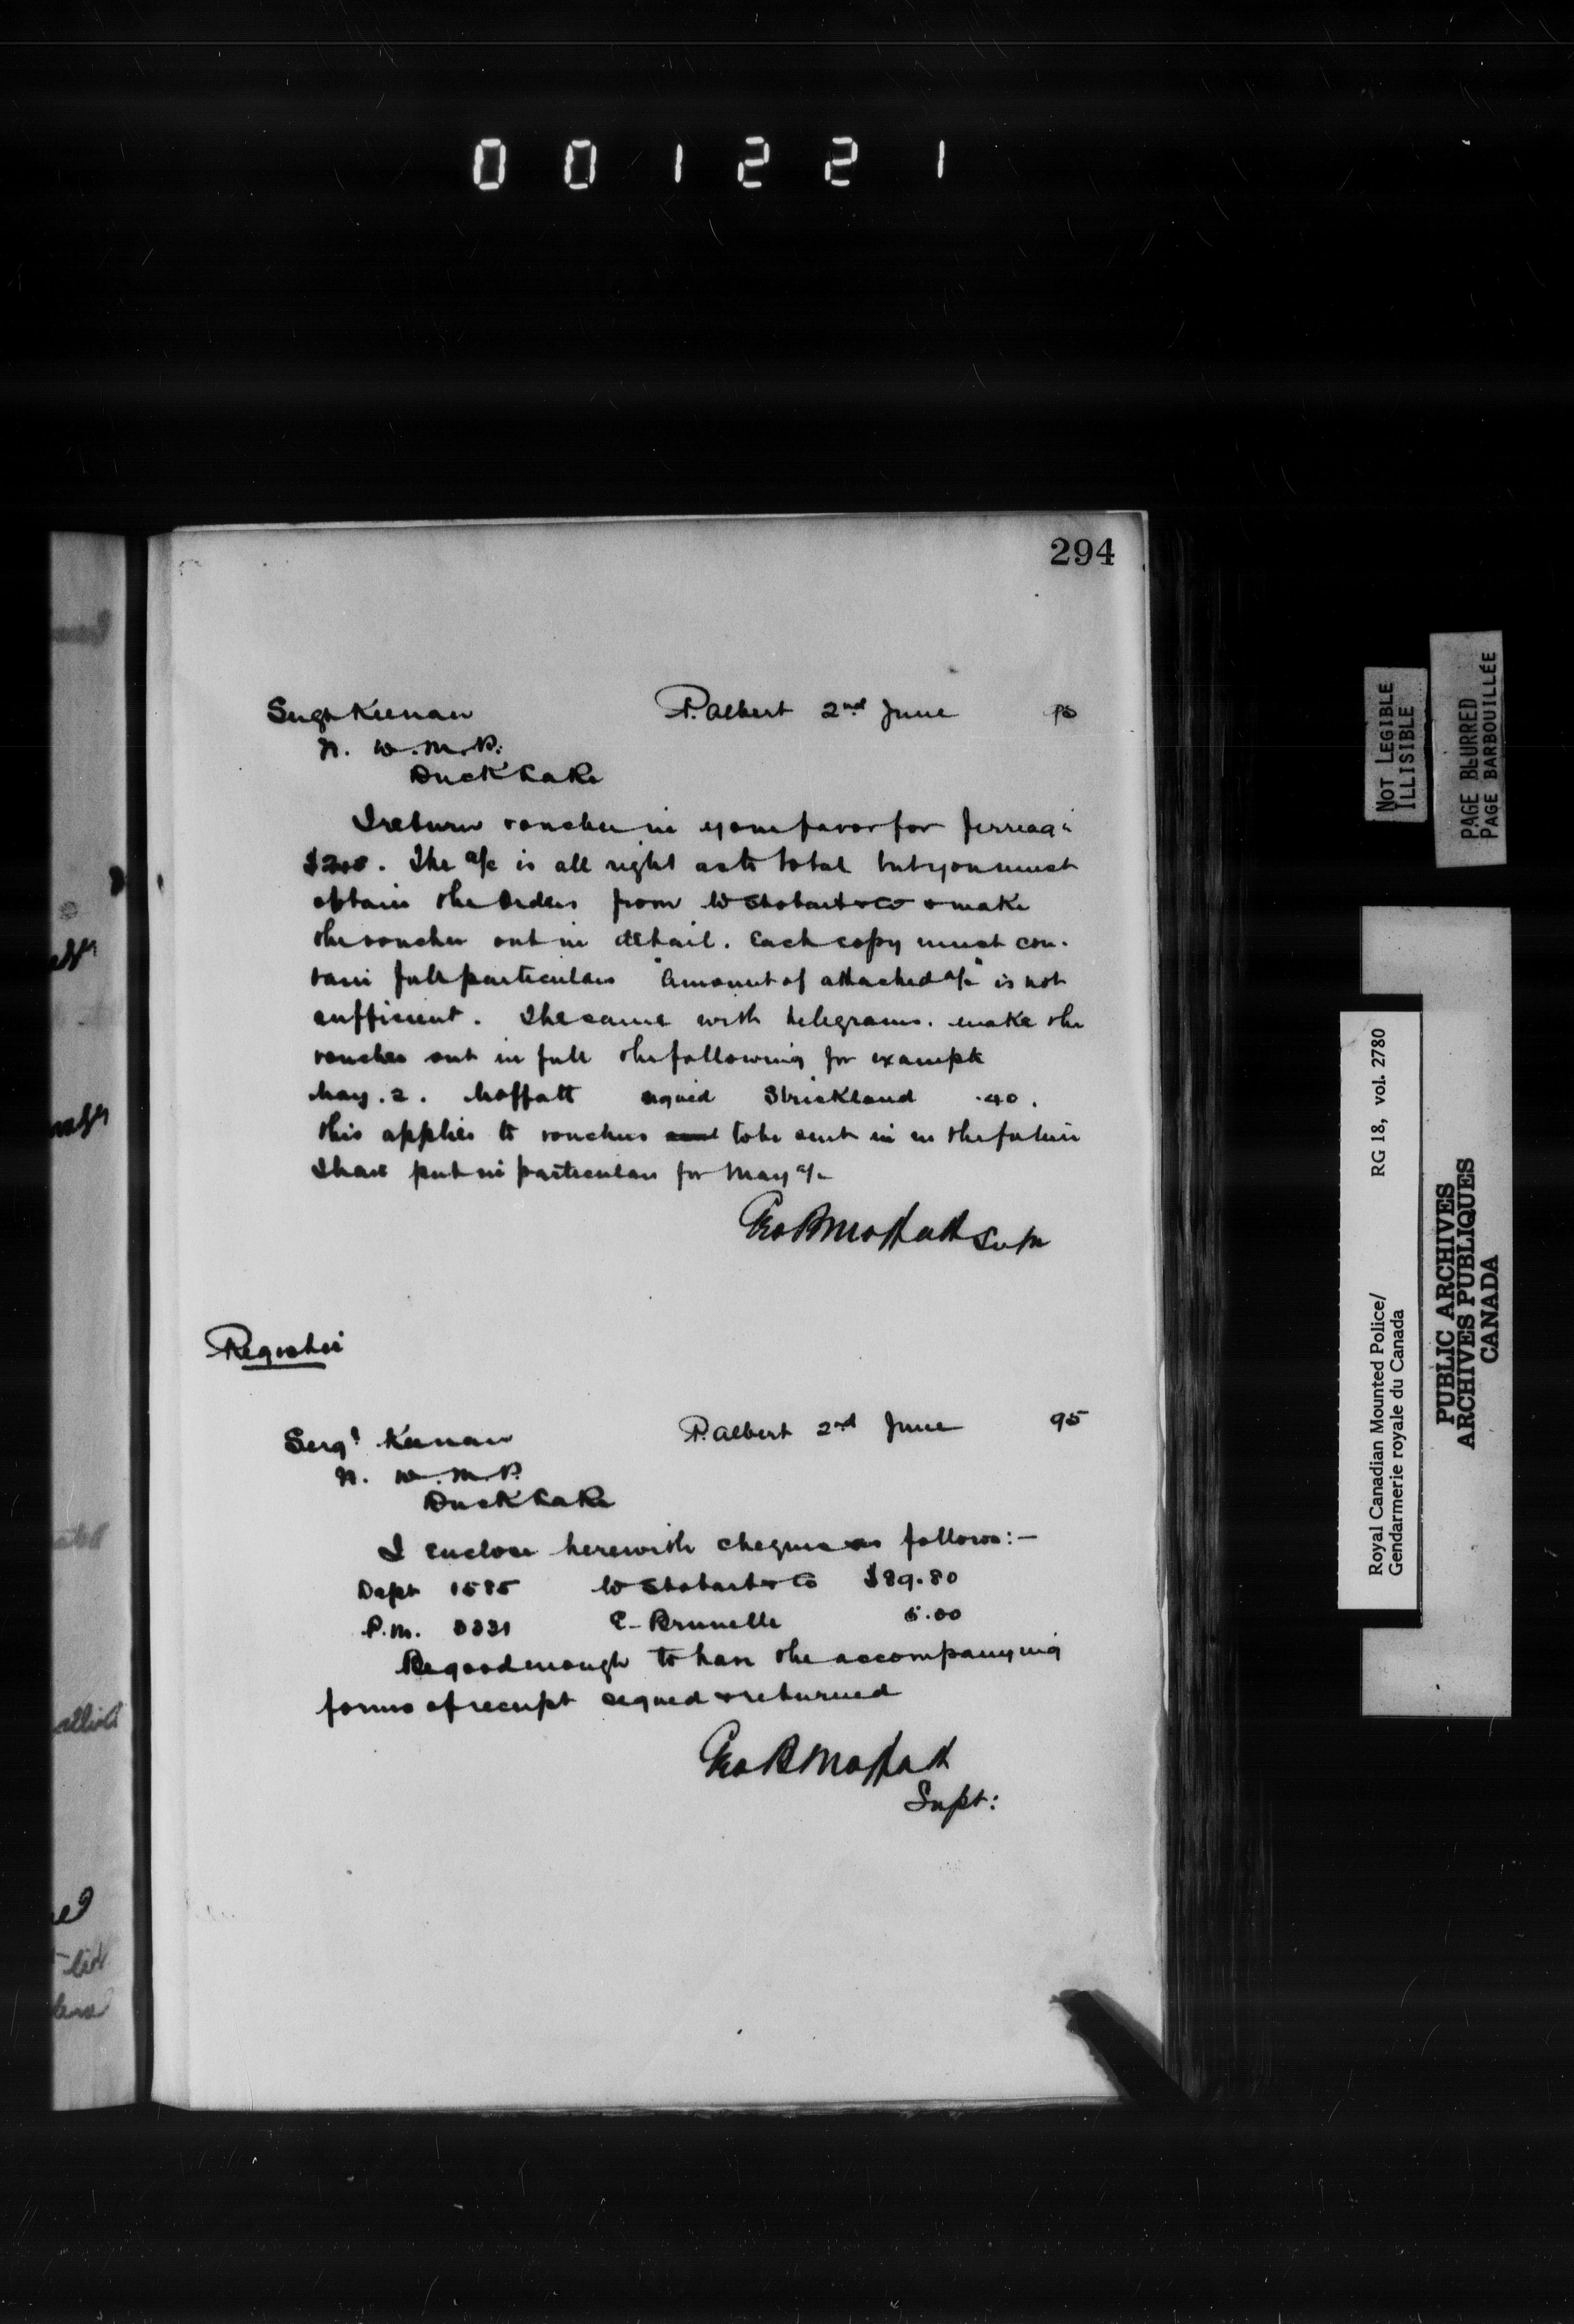 001221
294
Sergt Keenan P. Albert 2nd June 95
N. W. M. P.
Duck Lake
I return voucher in your favor for ferriage
The a/c is all right as to total but you must
obtain the orders from W Stobart & Co & make
the voucher out in detail. Each copy must con-
tain full particulars "Amount of attached a/c" is not
sufficient. The same with telegrams. make the
voucher out in full the following for example
May. 2. Moffatt signed Strickland .40.
this applies to vouchers to be sent in in the future
I have put in particulars for May a/c
Geo B Moffatt Supt
Register
Sergt Keenan P. Albert 2nd June 95
N. W. M. P.
Duck Lake
I enclose herewith cheques as follows:—
Dept 1585 W Stobart & Co $89.80
P.M. 3331 E. Brunelle 5.00
Be good enough to have the accompanying
forms of receipt signed & returned
Geo B Moffatt
Supt:
NOT LEGIBLE
ILLISIBLE
PAGE BLURRED
PAGE BARBOUILLÉE
Royal Canadian Mounted Police/ RG 18, vol. 2780
Gendarmerie royale du Canada
PUBLIC ARCHIVES
ARCHIVES PUBLIQUES
CANADA